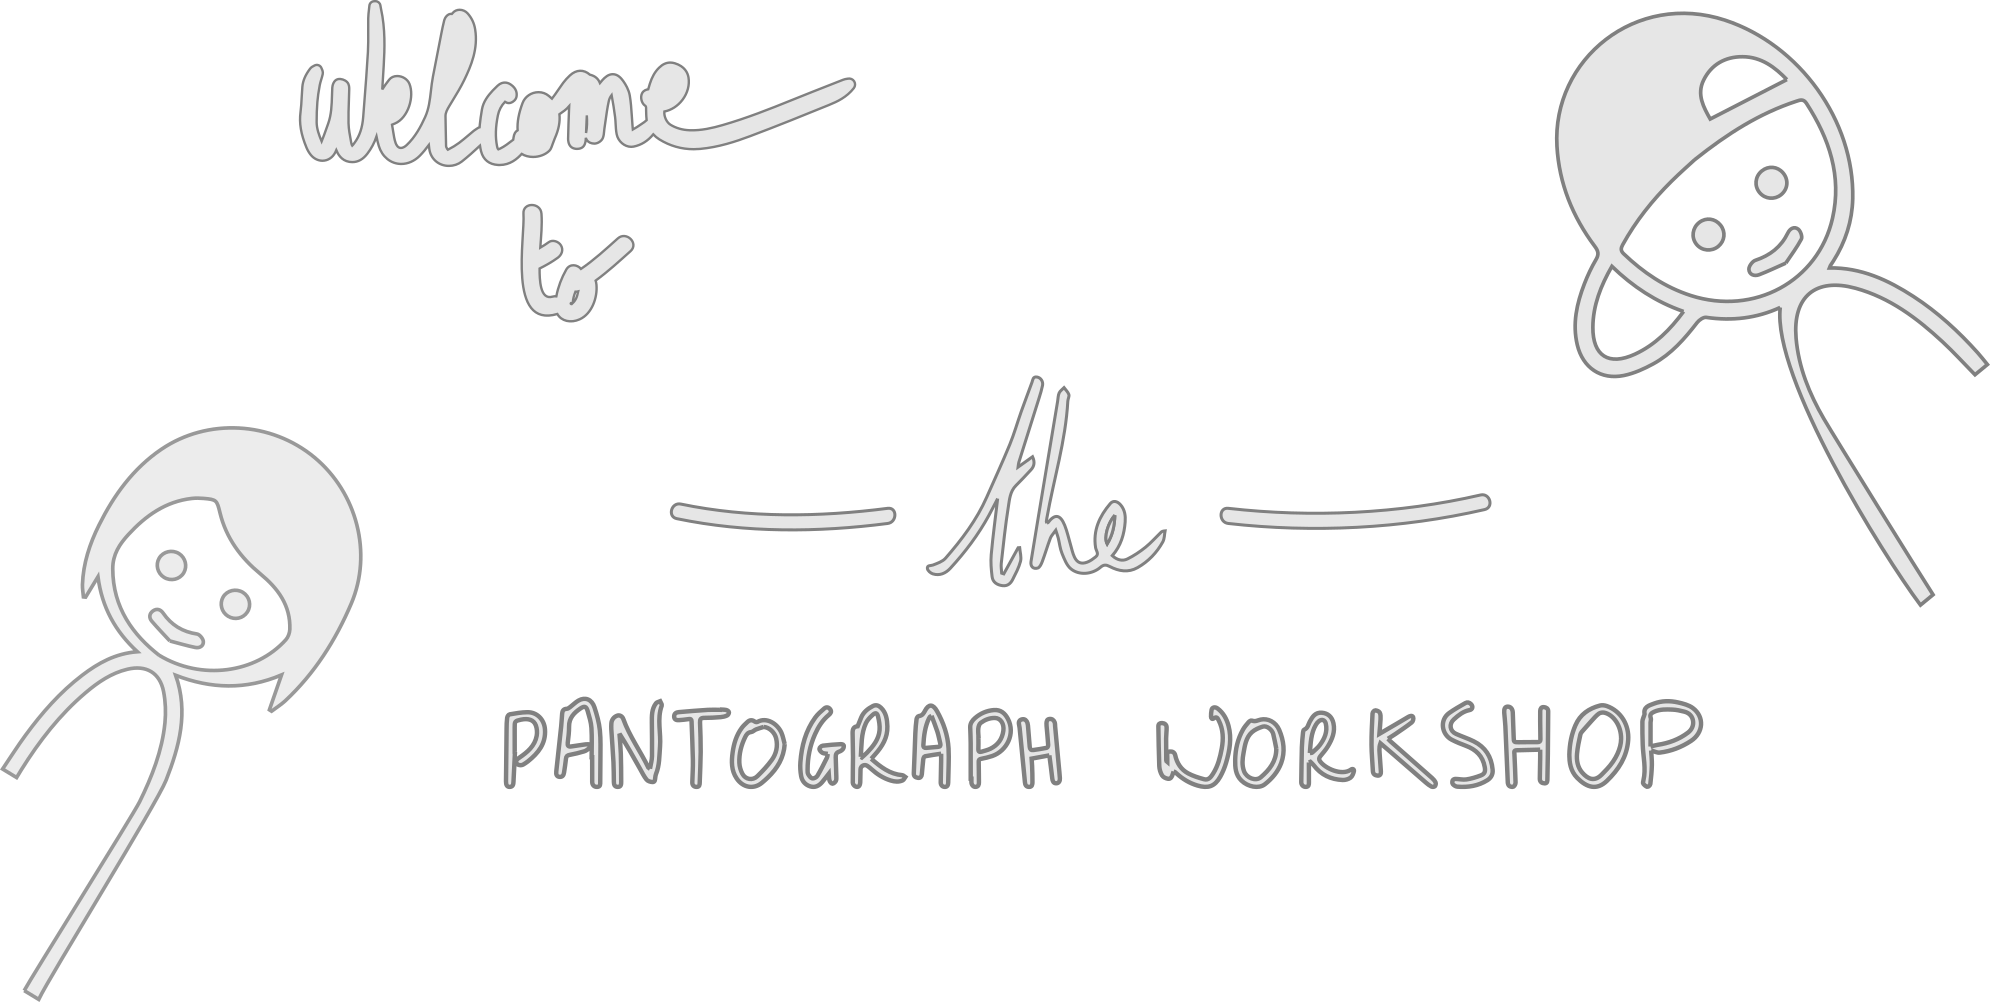 welcome
to
the
PANTOGRAPH WORKSHOP